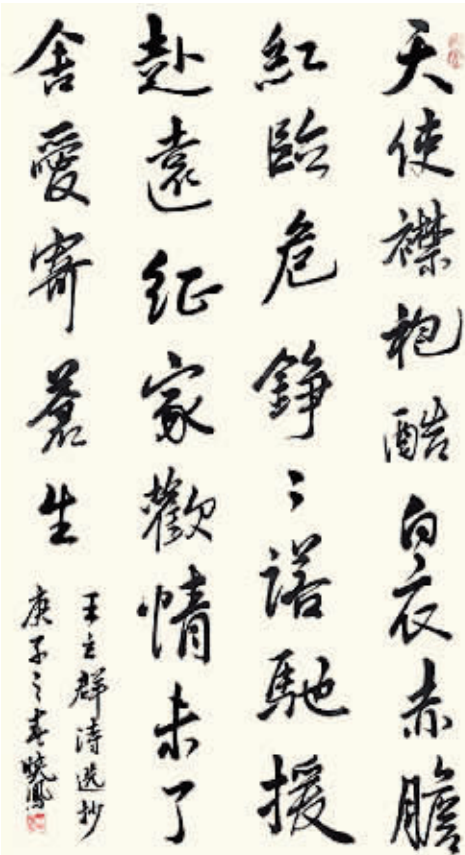 天使襟袍酷白衣赤膽
紅臨危錚〻諾馳援
赴遠征家歡情未了
舍愛寄蒼生
王立群诗选抄
庚子之春曉鳳